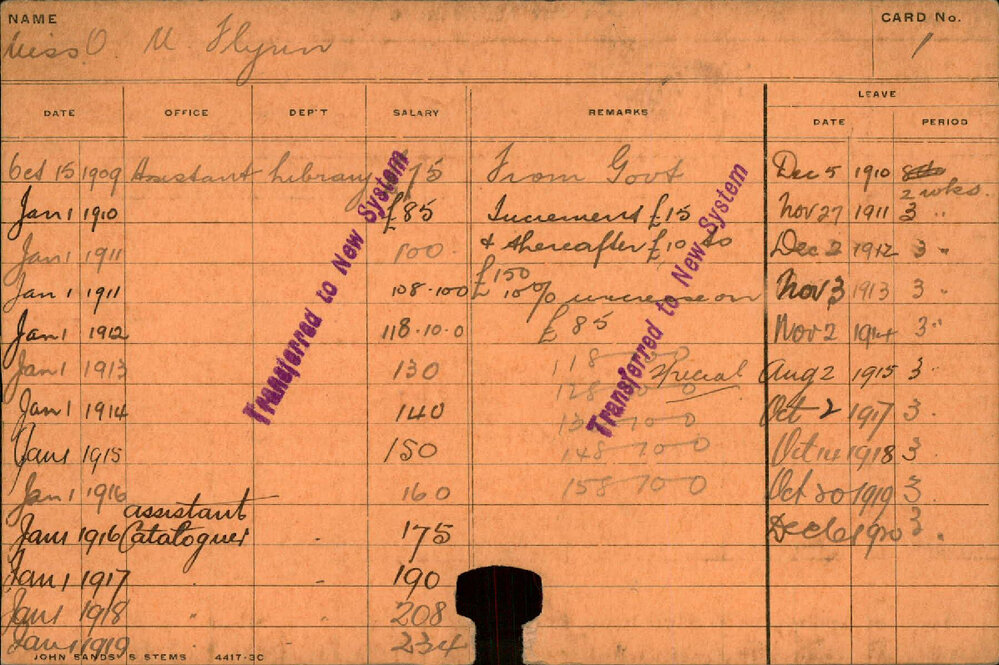 NAME
Miss O M Flynn
CARD No.
1
DATE OFFICE DEP'T SALARY REMARKS LEAVE
DATE PERIOD
Oct 15 1909 Assistant Library £75 From Govt Dec 5 1910
2 wks.
Jan 1 1910 £85 Increment £15 Nov 27 1911 3 "
Jan 1 1911 100 & thereafter £10 to Dec 2 1912 3 "
£150
Jan 1 1911 108-10-0 £10% increase on Nov 3 1913 3 "
Jan 1 1912 118-10-0 £85 Nov 2 1914 3 "
Jan 1 1913 130 118 special Aug 2 1915 3
Jan 1 1914 140 128 Oct 2 1917 3
Jan 1 1915 150 148-10-0 Oct 14 1918 3
Jan 1 1916 160 158-10-0 Oct 20 1919 3
Jan 1 1916 assistant
Cataloguer " 175 Dec 6 1920 3
Jan 1 1917 " 190
Jan 1 1918 " " 208
Jan 1 1919 234
Transferred to New System
Transferred to New System
JOHN SANDS' S STEMS 4417-3C